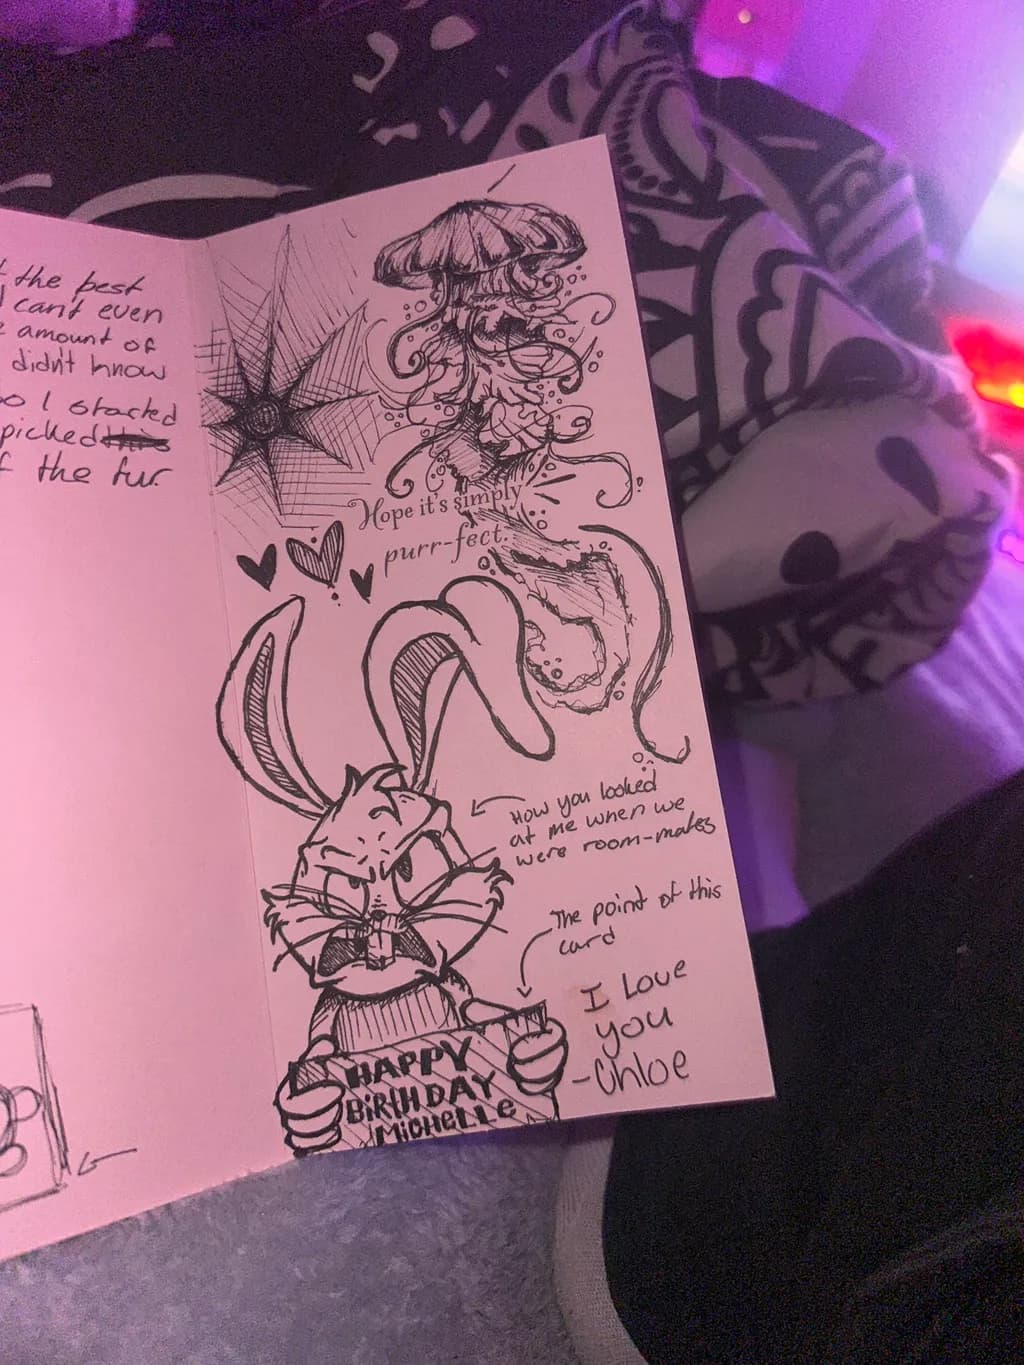 the best
I can't even
amount of
didn't know
so I started
picked this
the fur
Hope it's simply
purr-fect.
How you looked
at me when we
were room-mates
The point of this
card
I Love
you
-Chloe
HAPPY
BiRTHDAY
MiCHELLe